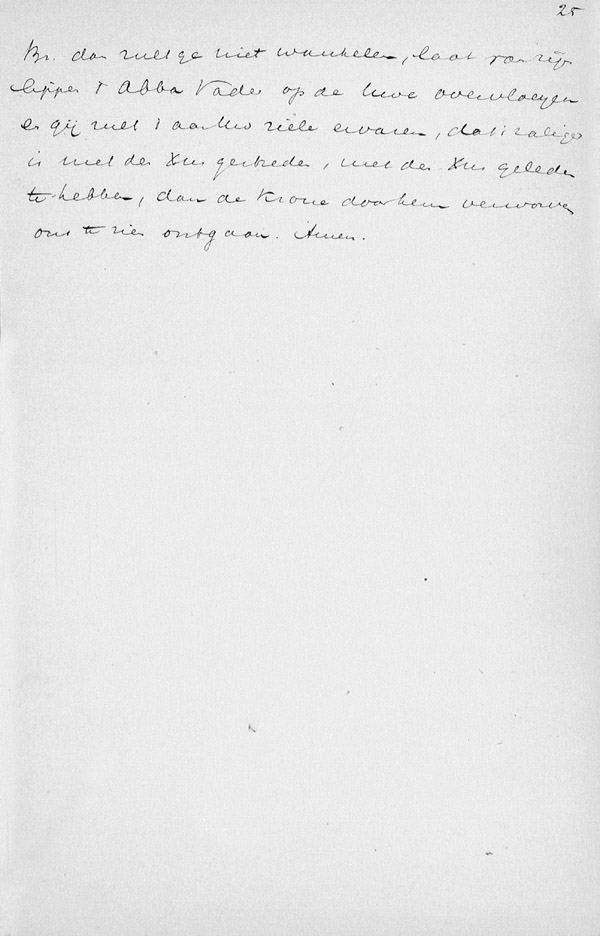 25
Br. dan zult ge niet wankelen, laat van zijn
lippen 't Abba Vader op de Uwe overvloeyen
en gij zult 't aan Uw ziele ervaren, dat 't zaliger
is met den Xus gestreden, met den Xus geleden
te hebben, dan de Krone door hem verworven
ons te zien ontgaan. Amen.